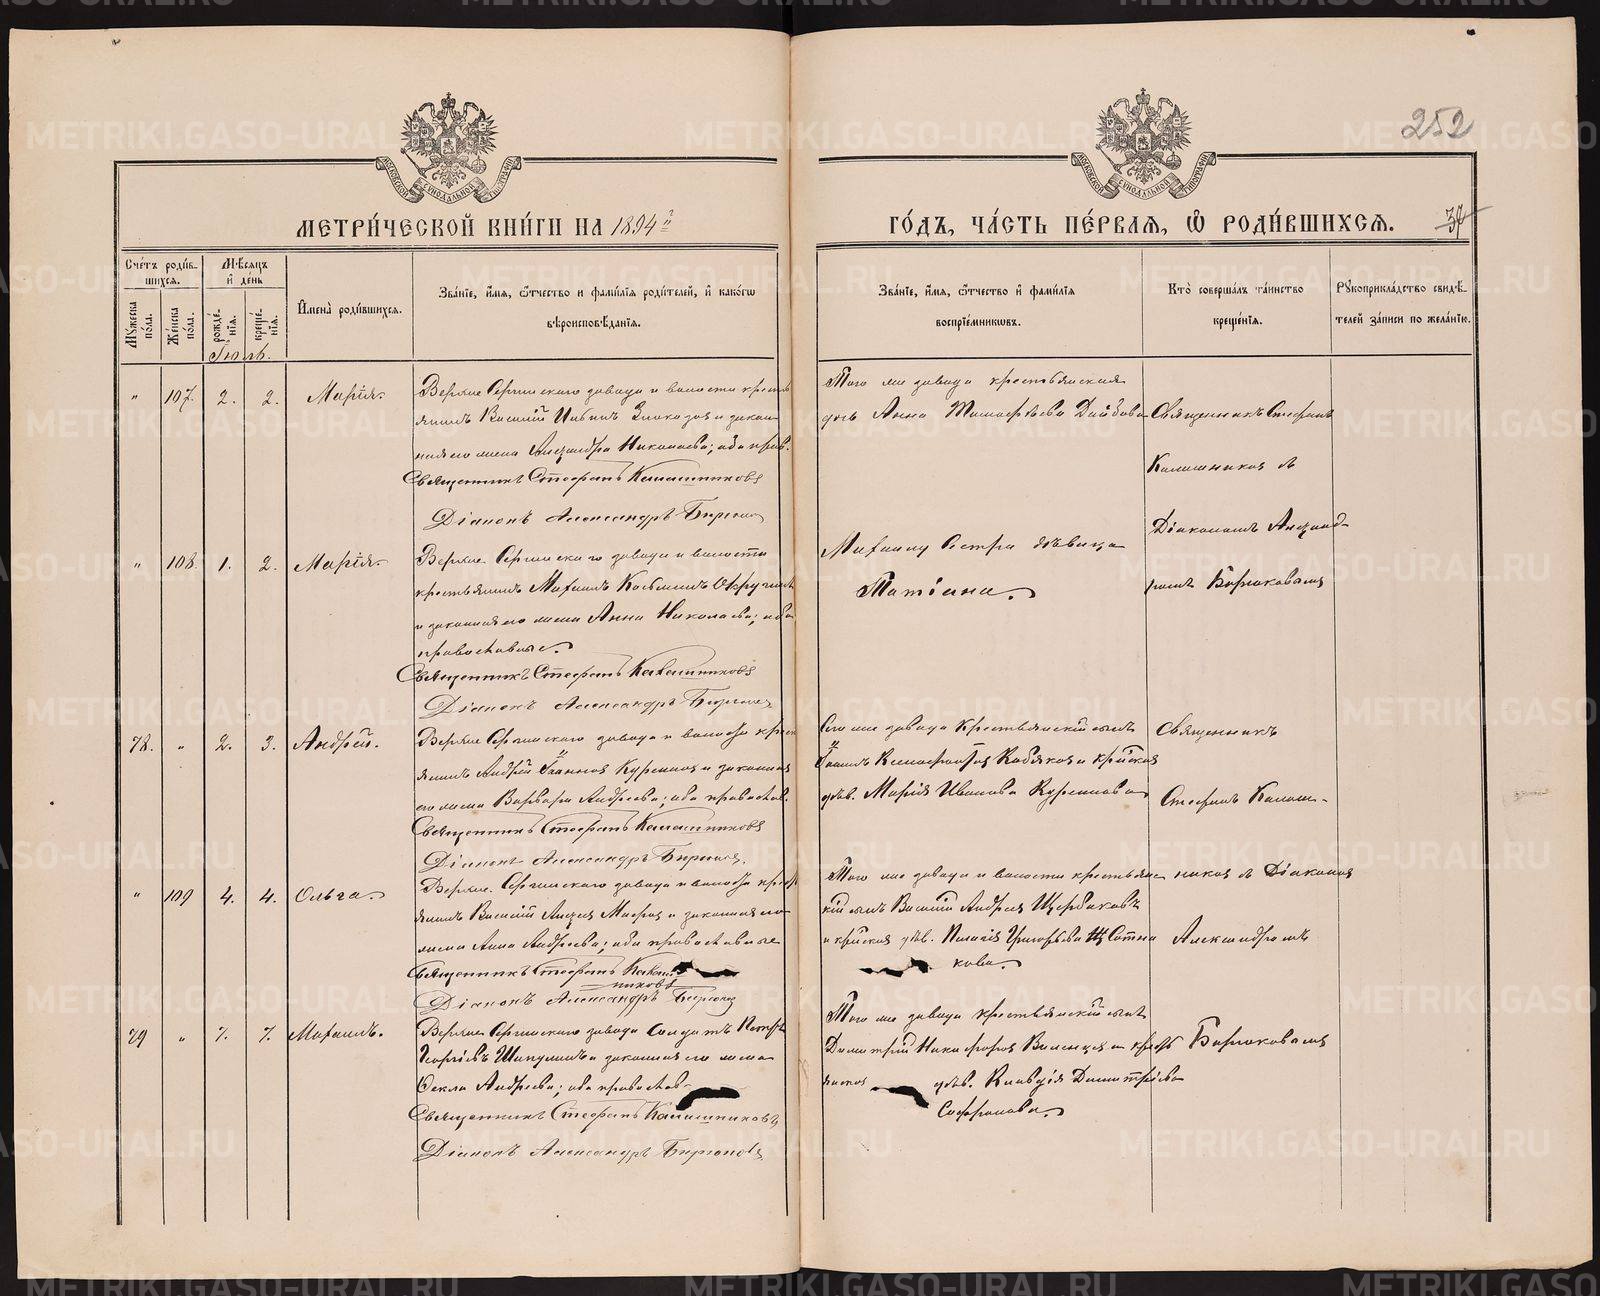 252
МЕТРИ́ЧЕСКОЙ КНИ́ГИ НА 1894й
ГО́ДЪ, ЧА́СТЬ ПЕ́РВАЯ, Ѿ РОДИ́ВШИХСЯ.
37
Сче́тъ роди́в-
шихся.
Му́жеска по́ла.
Же́нска по́ла.
Мѣ́сяцъ
и҆ де́нь
рожде́нїя.
креще́нїя.
И҆мена̀ роди́вшихся.
Зва́нїе, и҆́мя, ѻ҆́тчество и фами́лїя роди́телей, и҆ како́гѡ
вѣроисповѣ́данїя.
Зва́нїе, и҆́мя, ѻ҆́тчество и҆ фами́лїя
воспрїе́мниковъ.
Кто̀ соверша́лъ та́инство
креще́нїя.
Рꙋкоприкла́дство свидѣ́-
телей за́писи по жела́нїю.
Іюль.
" 107. 2. 2. Марія.
Верхне Сергинскаго завода и волости кресть
янинъ Василій
и закон
ная его жена Александра Николаева; оба прав.
Священникъ Стефанъ Калашниковъ
Діаконъ Александръ Бирюков
Того же завода крестьянская
дочь Анна Тимофѣева
Священникъ Стефанъ
Калашников съ
Діакономъ Александ-
ромъ Бирюковымъ
" 108. 1. 2. Марія.
Верхне Сергинскаго завода и волости
крестьянинъ Михаилъ Козьминъ
и законная его жена Анна Николаева; оба
православные.
Священникъ Стефанъ Калашниковъ
Діаконъ Александръ Бирюков
Михаилу сестра дѣвица
Татіана.
78. " 2. 3. Андрей.
Верхне Сергинскаго завода и волости крест
янинъ Андрей Іоаннов и законная
его жена Варвара Андреева; оба православ.
Священникъ Стефанъ Калашниковъ
Діаконъ Александръ Бирюков.
Сего же завода крестьянскій сынъ
Іоаннъ
дѣв. Марія Иванова
Священникъ
Стефанъ Калаш-
ников съ Діаконом
Александромъ
Бирюковымъ
" 109 4. 4. Ольга.
Верхне Сергинскаго завода и волости крест
янинъ Василій и законная его
жена Анна Андреева; оба православные
Священникъ Стефанъ Калаш
никовъ
Діаконъ Александръ Бирюков
Того же завода и волости крестьянс
кій сынъ Василій Андреев Щербаковъ
и крстская дѣв. Пелагія Григорьева Сотни
кова.
79 " 7. 7. Михаилъ.
Верхне Сергинскаго завода Солдатъ Петръ
Георгіевъ и законная его жена
Ѳекла Андреева; оба православ-
Священникъ Стефанъ Калашниковъ
Діаконъ Александръ Бирюковъ
Того же завода крестьянскій сынъ
Димитрій Никифоров и крест
янская дѣв. Клавдія Димитріева
Софронова.